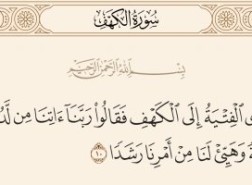 سُورَةُ الْكَهْفِ
بِسْمِ اللَّهِ الرَّحْمَٰنِ الرَّحِيمِ
الْفِتْيَةُ إِلَى الْكَهْفِ فَقَالُوا رَبَّنَا ءَاتِنَا مِن
وَهَيِّئْ لَنَا مِنْ أَمْرِنَا رَشَدًا ١٠